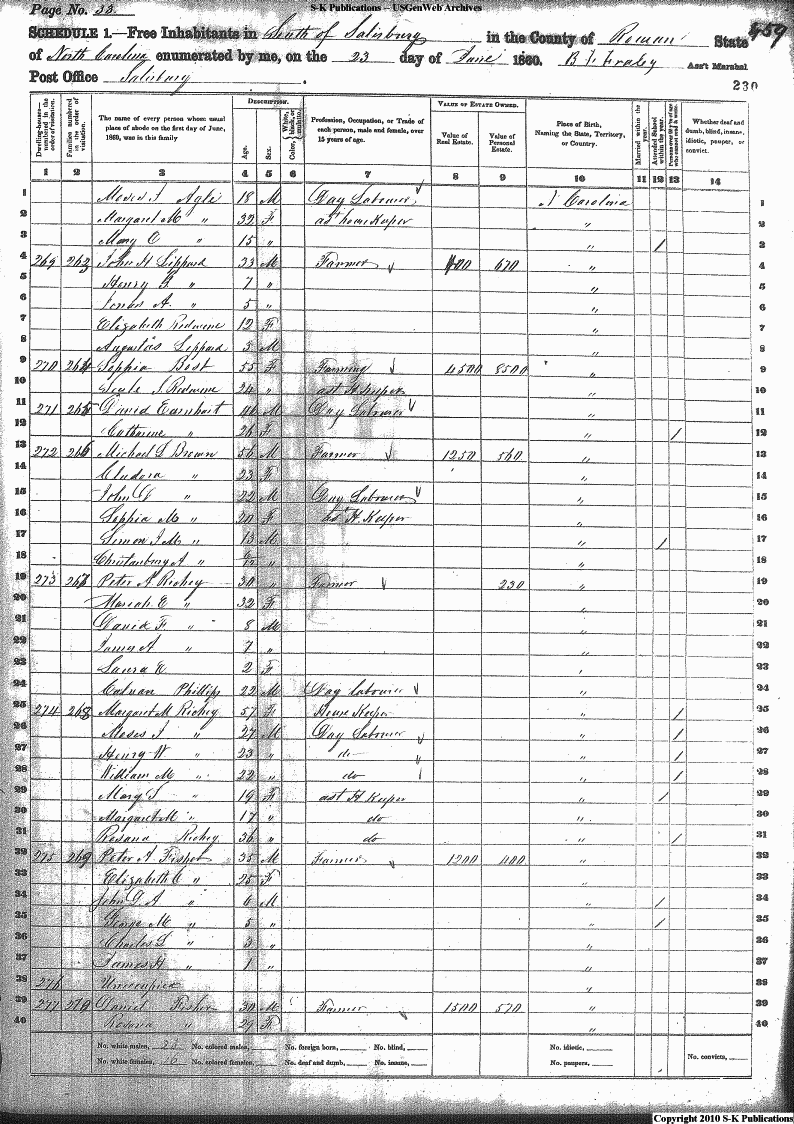 S-K Publications – USGenWeb Archives
Page No. 33.
SCHEDULE 1.—Free Inhabitants in South of Salisbury in the County of Rowan State 459
of North Carolina enumerated by me, on the 23 day of June 1860. B. F. Fraley Ass't Marshal
Post Office Salisbury 230
Dwelling-houses—numbered in the order of visitation. Families numbered in the order of visitation. The name of every person whose usual place of abode on the first day of June, 1860, was in this family DESCRIPTION. Age. Sex. Color, White, black, or mulatto. Profession, Occupation, or Trade of each person, male and female, over 15 years of age. VALUE OF ESTATE OWNED. Value of Real Estate. Value of Personal Estate. Place of Birth, Naming the State, Territory, or Country. Married within the year. Attended School within the year. Whether deaf and dumb, blind, insane, idiotic, pauper, or convict.
1 2 3 4 5 6 7 8 9 10 11 12 13 14
1 Moses J. Agle 18 M Day Labourer N Carolina 1
2 Margaret M " 32 F ast house Keeper " 2
3 Mary C " 15 " " / 3
4 269 263 John H Lippard 33 M Farmer 670 " 4
5 Henry " 7 " " 5
6 Jonas A. " 5 " " 6
7 Elizabeth Redwine 12 F " 7
8 Augustas Lippard 3 M " 8
9 270 264 Sophia Bost 55 F Farming 4500 8500 " 9
10 Redwine 24 " ast H. Keeper " 10
11 271 265 David Earnhart 46 M Day Labourer " 11
12 Catharine " 26 F " / 12
13 272 266 Michael L Brown 56 M Farmer 1250 560 " 13
14 Eludora " 23 F " 14
15 John D " 22 M Day Labourer " 15
16 Sophia M " 20 F ast H. Keeper " 16
17 Simon J. M " 13 M " / 17
18 A " " " 18
19 273 267 Peter A Richey 30 " Farmer 230 " 19
20 Mariah E " 32 F " 20
21 David F " 8 M " 21
22 A " 7 " " 22
23 Laura 2 F " 23
24 Calvan Phillips 22 M Day labourer " 24
25 274 268 Margaret M Richey 57 F House Keeper " / 25
26 Moses J " 27 M Day Labourer " / 26
27 Henry W " 23 " do " / 27
28 William M " 22 " do " / 28
29 Mary " 19 F ast H Keeper " / 29
30 Margaret M " 17 " do " 30
31 Rosana Richey 36 " do " / 31
32 275 269 Peter A. Fisher 35 M Farmer 1200 400 " 32
33 Elizabeth C " 25 F " 33
34 John D. A " 6 M " / 34
35 George M " 5 " " / 35
36 Charles L " 3 " " 36
37 James H " 1 " " 37
38 276 Unoccupied " 38
39 277 270 Daniel Fisher 30 M Farmer 1500 570 " 39
40 Rosana " 29 F " 40
No. white males, No. colored males, No. foreign born, No. blind, No. idiotic, No. convicts,
No. white females, 16 No. colored females, No. deaf and dumb, No. insane, No. paupers,
Copyright 2010 S-K Publications